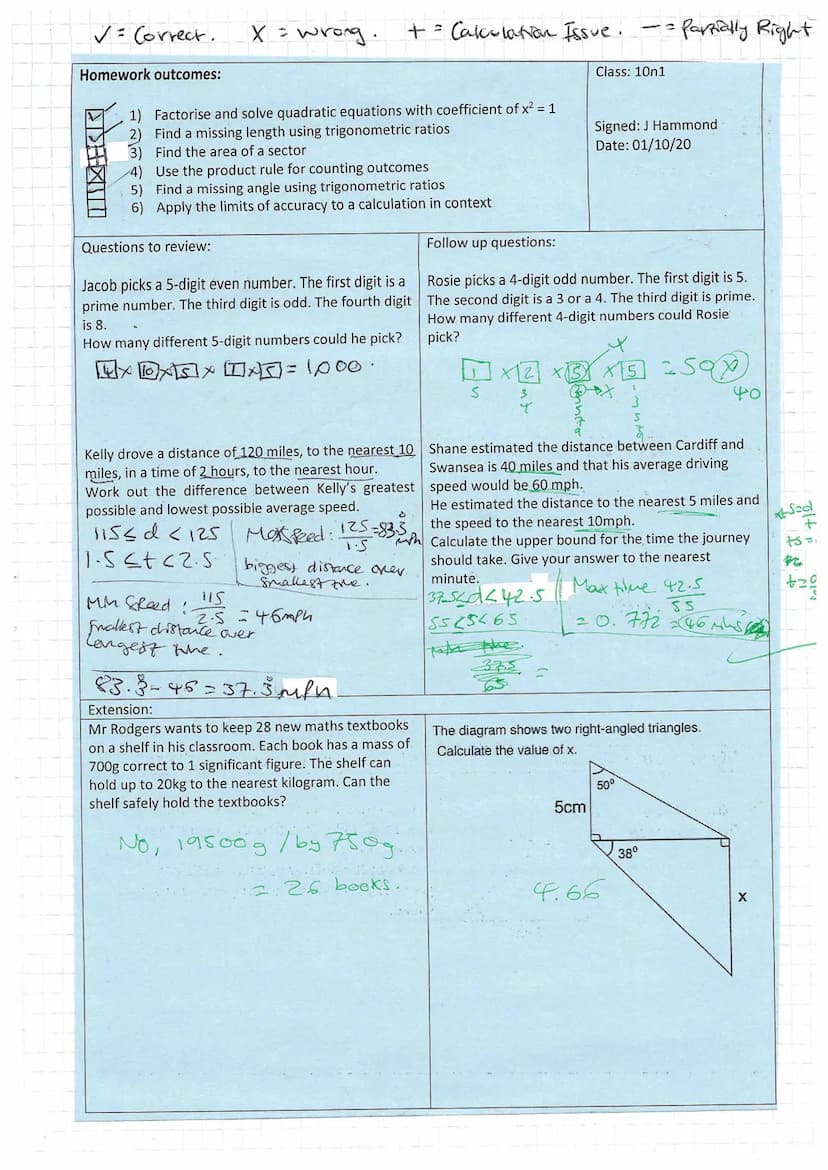 ✓ = Correct. X = Wrong. + = Calculation Issue. — = Partially Right
Homework outcomes:
1) Factorise and solve quadratic equations with coefficient of x² = 1
2) Find a missing length using trigonometric ratios
3) Find the area of a sector
4) Use the product rule for counting outcomes
5) Find a missing angle using trigonometric ratios
6) Apply the limits of accuracy to a calculation in context
Class: 10n1
Signed: J Hammond
Date: 01/10/20
Questions to review:
Jacob picks a 5-digit even number. The first digit is a
prime number. The third digit is odd. The fourth digit
is 8.
How many different 5-digit numbers could he pick?
4 x 10 x 5 x 1 x 5 = 1,000.
Follow up questions:
Rosie picks a 4-digit odd number. The first digit is 5.
The second digit is a 3 or a 4. The third digit is prime.
How many different 4-digit numbers could Rosie
pick?
1 x 2 x 5 x 5 = 50 x
4
40
5
3
4
2 → x
3
5
7
9
1
3
5
7
9
Kelly drove a distance of 120 miles, to the nearest 10
miles, in a time of 2 hours, to the nearest hour.
Work out the difference between Kelly's greatest
possible and lowest possible average speed.
115 ≤ d < 125
1.5 ≤ t < 2.5
Max Speed: 125/1.5 = 83.3̇ mph
biggest distance over
smallest time.
Min Speed: 115/2.5 = 46mph
Smallest distance over
longest time.
83.3̇ - 46 = 37.3̇ mph
Shane estimated the distance between Cardiff and
Swansea is 40 miles and that his average driving
speed would be 60 mph.
He estimated the distance to the nearest 5 miles and
the speed to the nearest 10mph.
Calculate the upper bound for the time the journey
should take. Give your answer to the nearest
minute.
37.5 ≤ d < 42.5
55 ≤ s < 65
Max time 42.5/55
= 0.772 = 46 mins
37.5/65 =
s=d/t
ts=
t=
Extension:
Mr Rodgers wants to keep 28 new maths textbooks
on a shelf in his classroom. Each book has a mass of
700g correct to 1 significant figure. The shelf can
hold up to 20kg to the nearest kilogram. Can the
shelf safely hold the textbooks?
No, 19500g / by 750g
= 26 books.
The diagram shows two right-angled triangles.
Calculate the value of x.
50°
5cm
38°
x
4.66